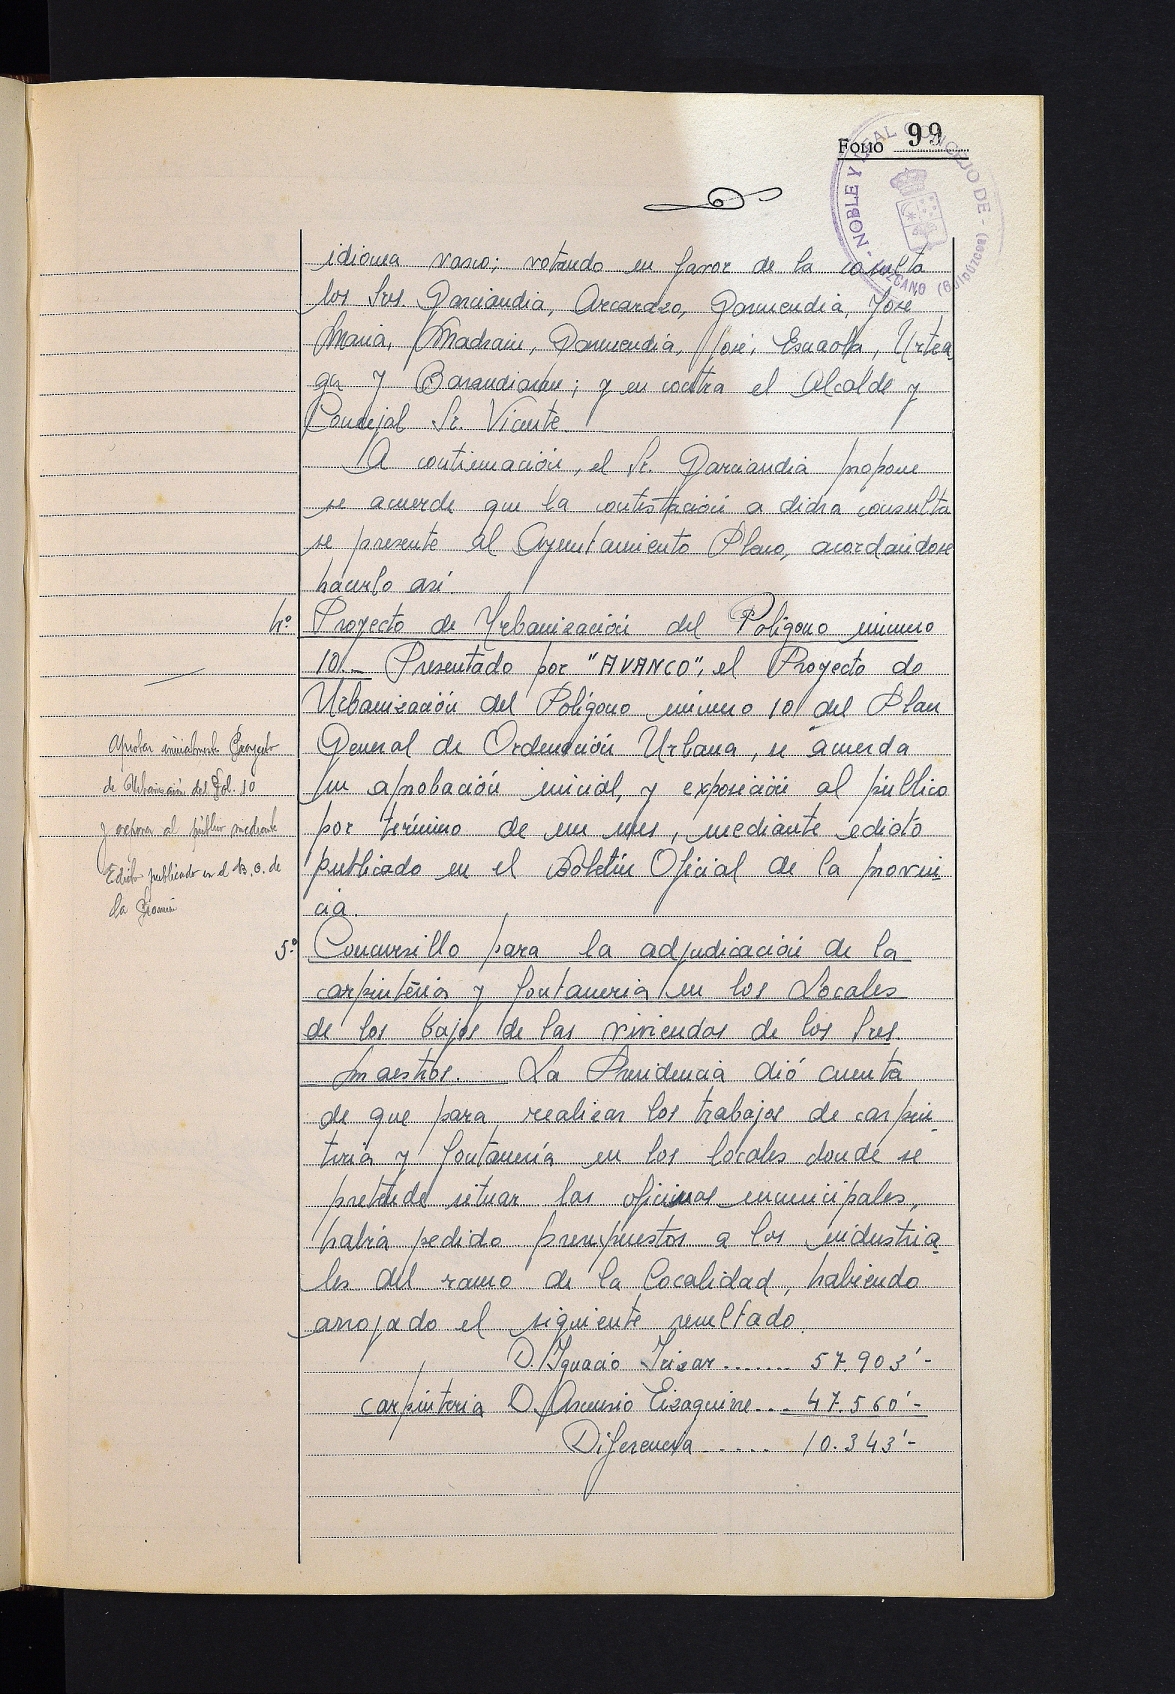 FOLIO 99
NOBLE Y LEAL CONCEJO DE - LAZCANO (Guipúzcoa) -
idioma vasco; votando en favor de la consulta
los Sres Garciandia, Arcarazo, Garmendia, Jose
Maria, Madrani, Garmendia, José, Esnaola, Urtea
ga y Barandiaran; y en contra el Alcalde y
Concejal Sr. Vicente.
A continuación, el Sr. Garciandia propone
se acuerde que la contestación a dicha consulta
se presente al Ayuntamiento Pleno, acordandose
hacerlo así.
4º Proyecto de Urbanización del Polígono número
10.- Presentado por "AVANCO", el Proyecto de
Urbanización del Polígono número 10 del Plan
General de Ordenación Urbana, se acuerda
su aprobación inicial, y exposición al público
por término de un mes, mediante edicto
publicado en el Boletín Oficial de la provin
cia.
Aprobar inicialmente Proyecto
de Urbanización del Pol. 10
y exponer al público mediante
Edicto publicado en el B.O. de
la Provincia
5º Concursillo para la adjudicación de la
carpintería y fontanería en los Locales
de los bajos de las viviendas de los Sres
Maestros. La Presidencia dió cuenta
de que para realizar los trabajos de carpin-
tería y fontanería en los locales donde se
pretende situar las oficinas municipales,
había pedido presupuestos a los industria
les del ramo de la localidad, habiendo
arrojado el siguiente resultado.
D. Ignacio Irizar ....... 57.903'-
carpintería D. Ascensio Eizaguirre... 47.560'-
Diferencia ...... 10.343'-